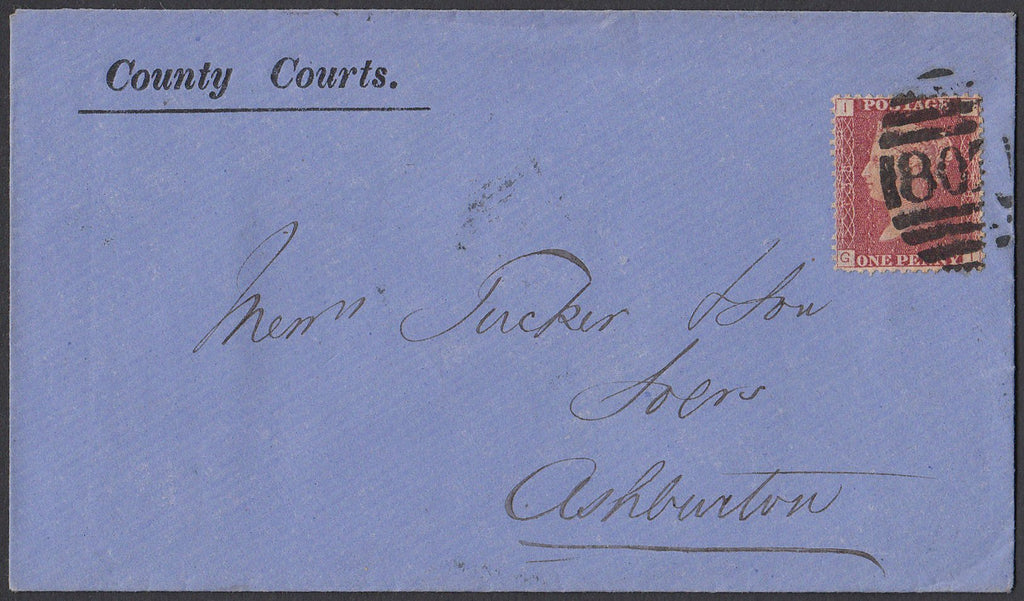 County Courts.
I POSTAGE
803
G ONE PENNY I
Messrs Tucker & Son
Solrs
Ashburton